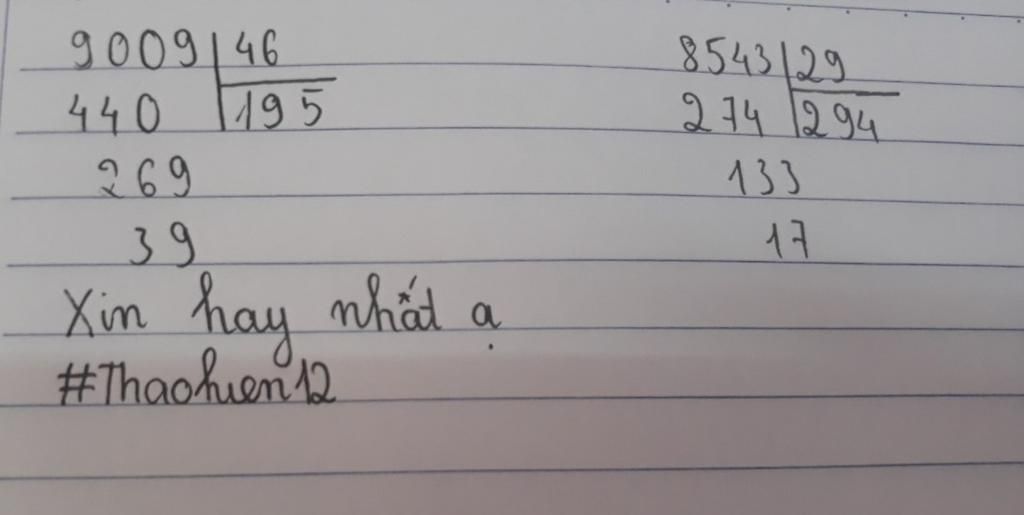 9009 46
440 195
269
39
8543 29
274 294
133
17
Xin hay nhất ạ
#Thaohien12